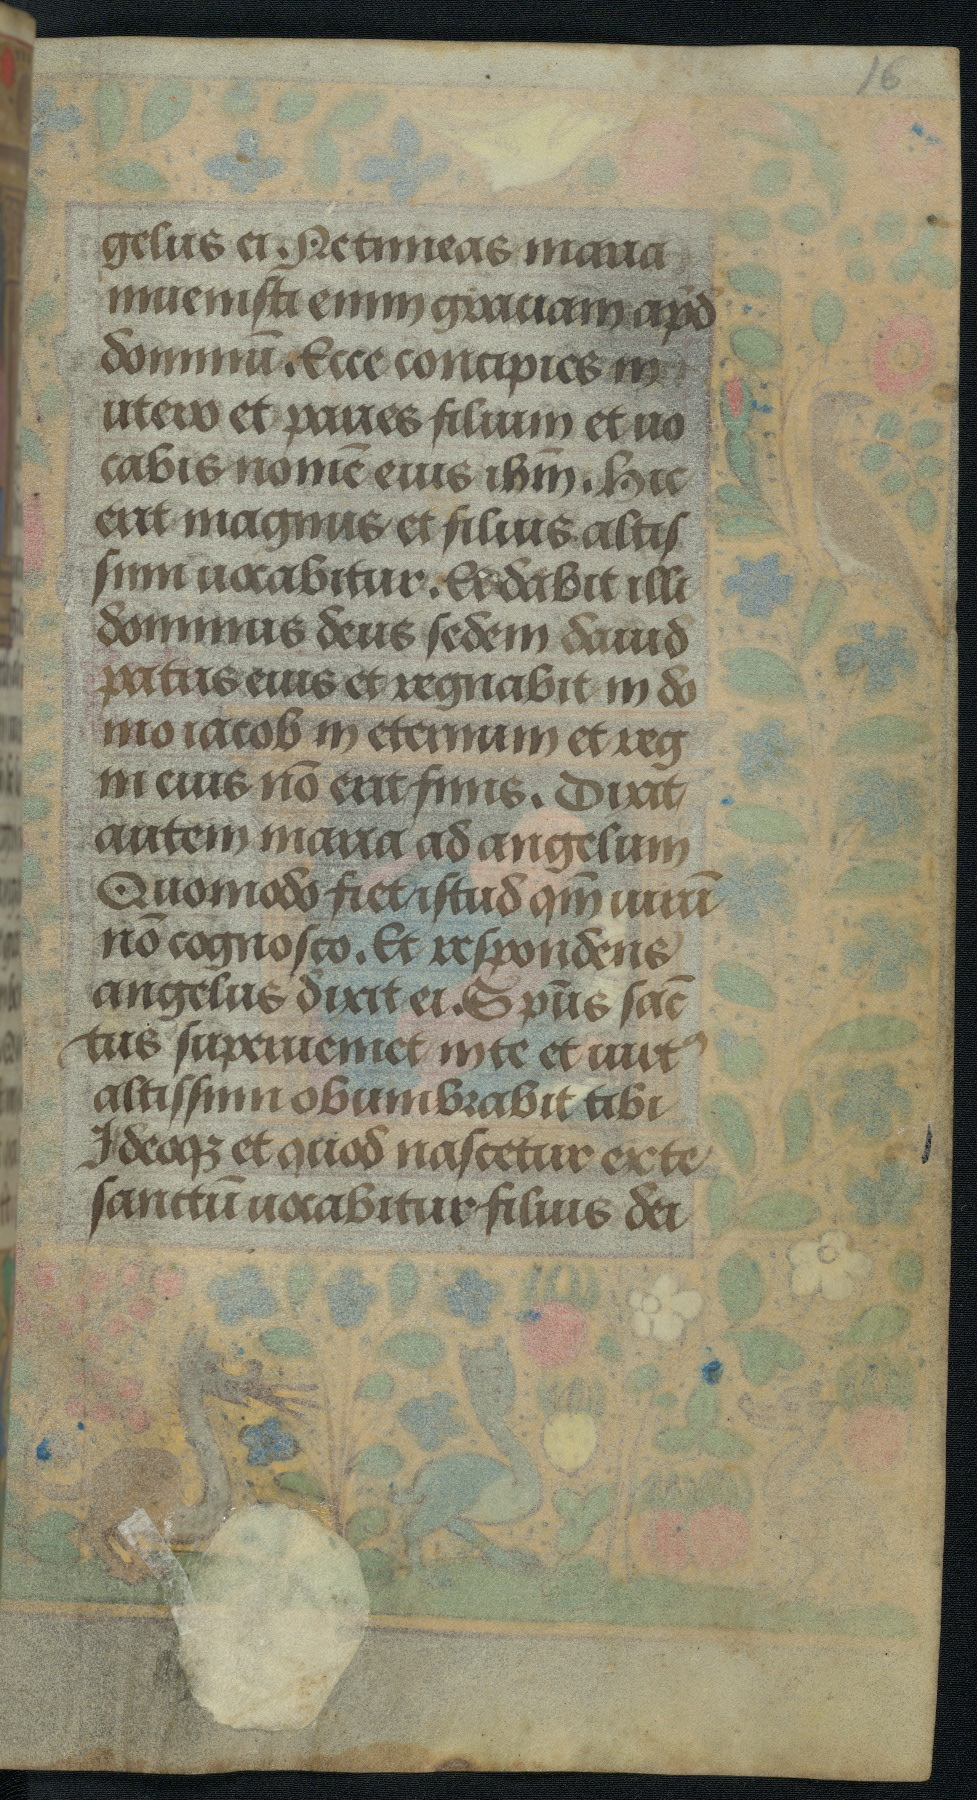 16
gelus ei. Ne timeas maria
inuenisti enim graciam apd̄
dominū. Ecce concipies in
utero et paries filium et uo
cabis nomē eius ihm̄. Hic
erit magnus et filius altis
simi uocabitur. Et dabit illi
dominus deus sedem dauid
patris eius et regnabit in do
mo iacob in eternum et reg
ni eius nō erit finis. Dixit
autem maria ad angelum
Quomodo fiet istud qm̄ uirū
nō cognosco. Et respondens
angelus dixit ei. Spūs sāc
tus superueniet in te et uirt᾽
altissimi obumbrabit tibi
Ideoqꝫ et quod nascetur ex te
sanctū uocabitur filius dei